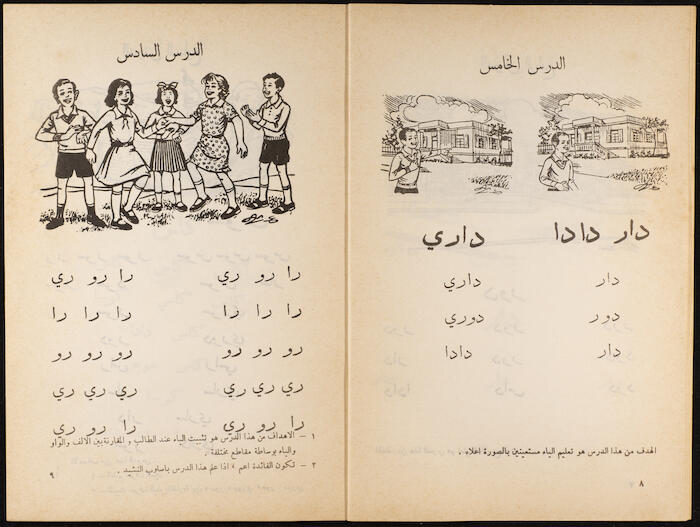 الدرس الخامس
دار دادا داري
دار داري
دور دوري
دار دادا
الهدف من هذا الدرس هو تعليم الياء مستعينين بالصورة اعلاه .
٨
الدرس السادس
را رو ري را رو ري
را را را را را را
رو رو رو رو رو رو
ري ري ري ري ري ري
را رو ري را رو ري
١ – الاهداف من هذا الدرس هو تثبيت الياء عند الطالب و المقارنة بين الالف والواو
والياء بوساطة مقاطع مختلفة .
٢ – تكون الفائدة اعم ، اذا علم هذا الدرس باسلوب النشيد .
٩